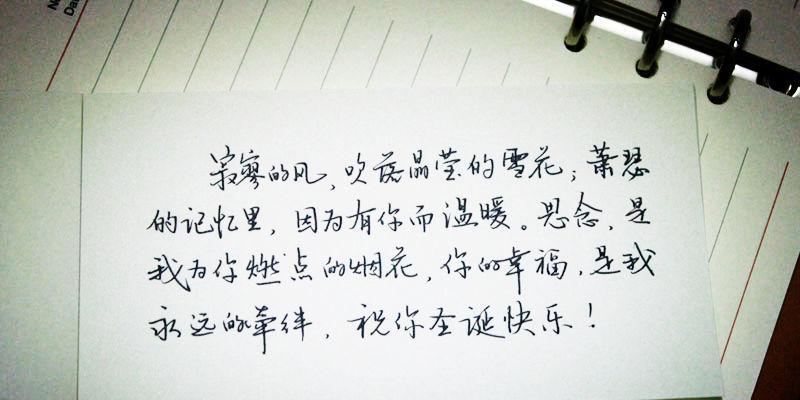 No
Da
寂寥的风,吹落晶莹的雪花;萧瑟
的记忆里,因为有你而温暖。思念,是
我为你燃点的烟花,你的幸福,是我
永远的牵绊,祝你圣诞快乐!